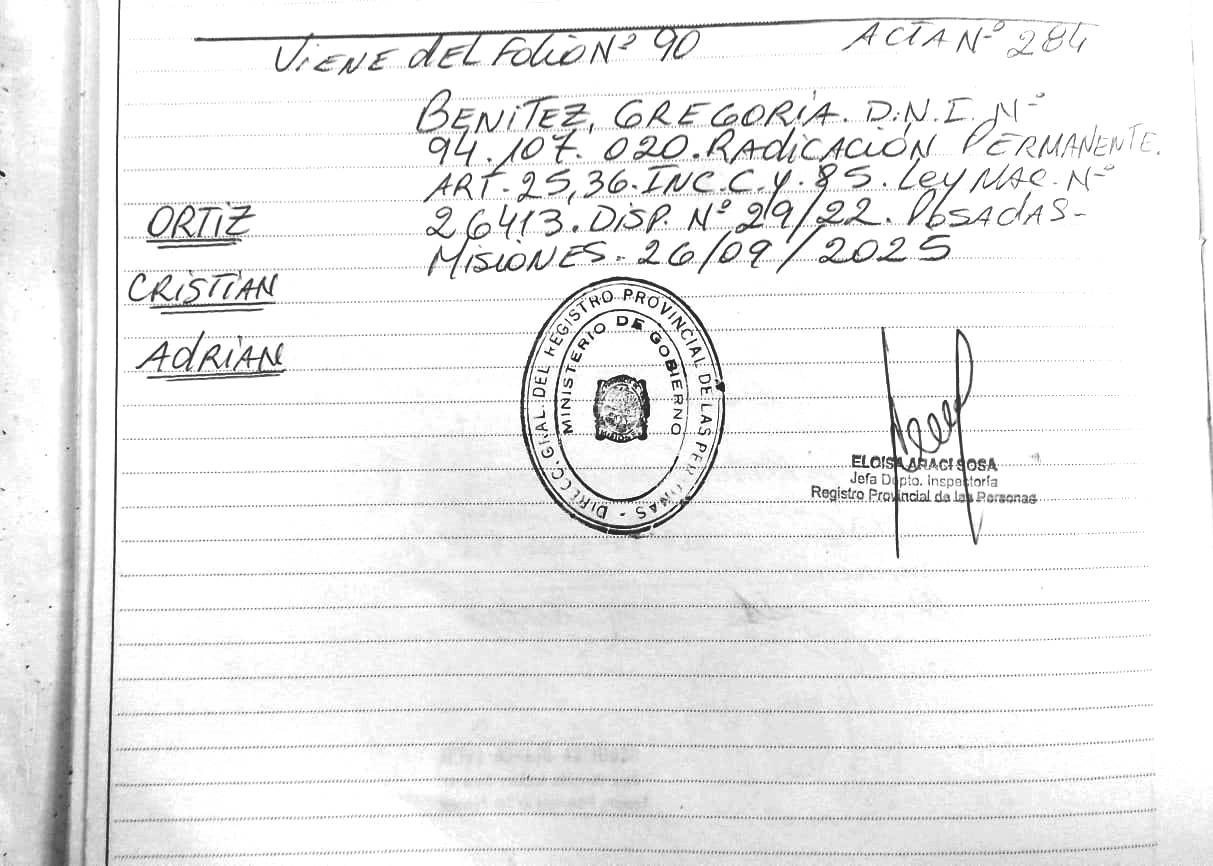 Viene del Folio Nº 90 ACTA Nº 284
BENITEZ, GREGORIA. D.N.I. Nº
94.107.020. Radicación PERMANENTE.
ART. 25,36. INC. C. y. 85. Ley NAC. Nº
26413. DISP. Nº 29/22. POSADAS-
MISIONES. 26/09/2025
ORTIZ
CRISTIAN
AdRIAN
DIRECC. GRAL. DEL REGISTRO PROVINCIAL DE LAS PERSONAS -
MINISTERIO DE GOBIERNO
ELOISA ARACI SOSA
Jefa Dpto. Inspectoría
Registro Provincial de las Personas